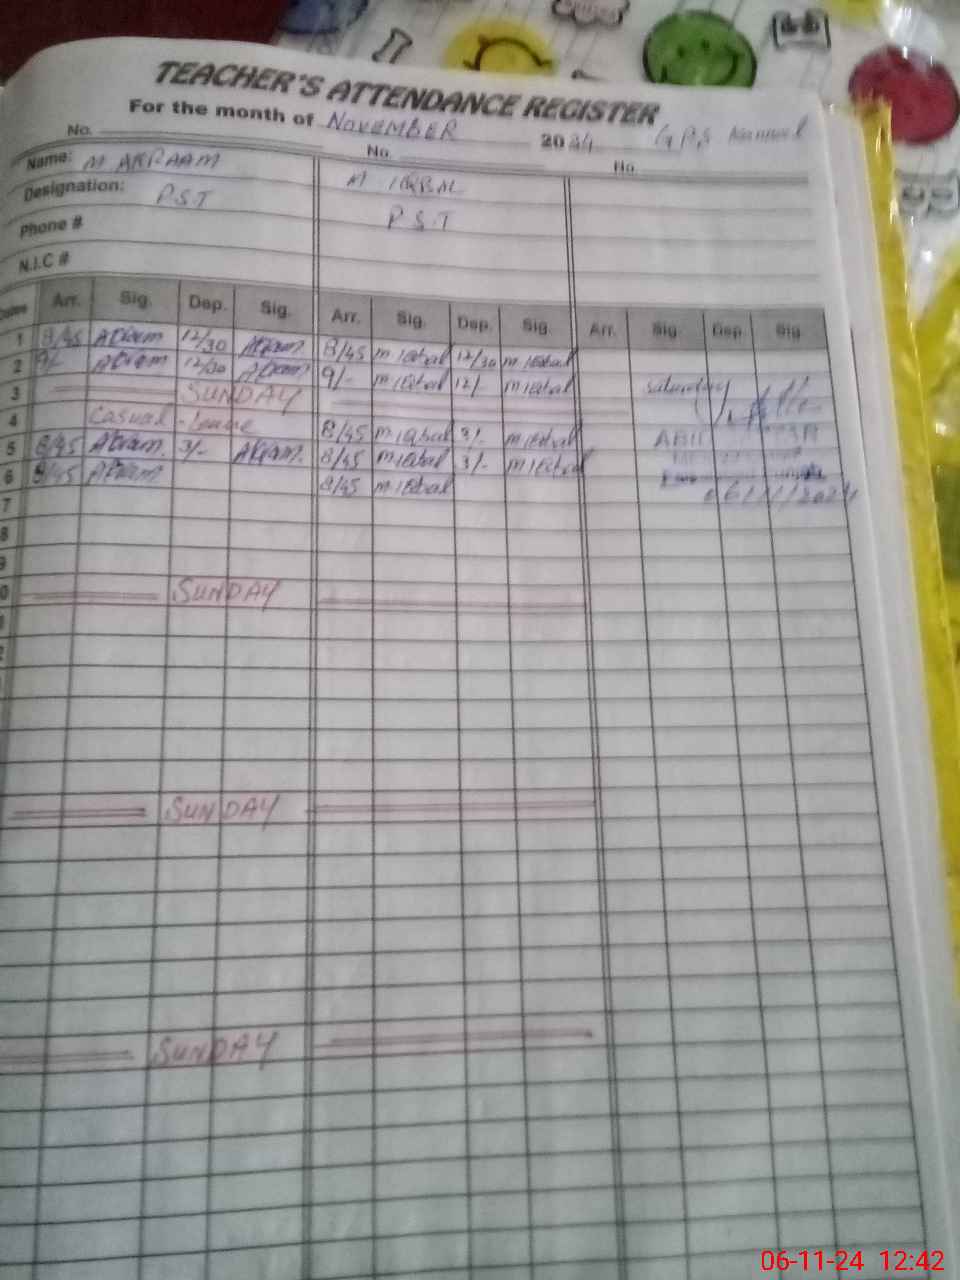 TEACHER'S ATTENDANCE REGISTER
For the month of NOVEMBER 2024 G.P.S
No. No. No.
Name: M AKRAAM M IQBAL
Designation: P.S.T P.S.T
Phone #
N.I.C #
Dates Arr. Sig. Dep. Sig. Arr. Sig. Dep. Sig. Arr. Sig. Dep. Sig.
1 8/45 Akram 12/30 Akram 8/45 M Iqbal 12/30 M Iqbal
2 9/- Akram 12/30 Akram 9/- M Iqbal 12/- M Iqbal Saturday
3 SUNDAY
4 Casual - Leave 8/45 M Iqbal 3/- M Iqbal
5 8/45 Akram 3/- Akram 8/45 M Iqbal 3/- M Iqbal
6 8/45 Akram 8/45 M Iqbal 06/11/2024
7
8
9
0 SUNDAY
SUNDAY
SUNDAY
06-11-24 12:42